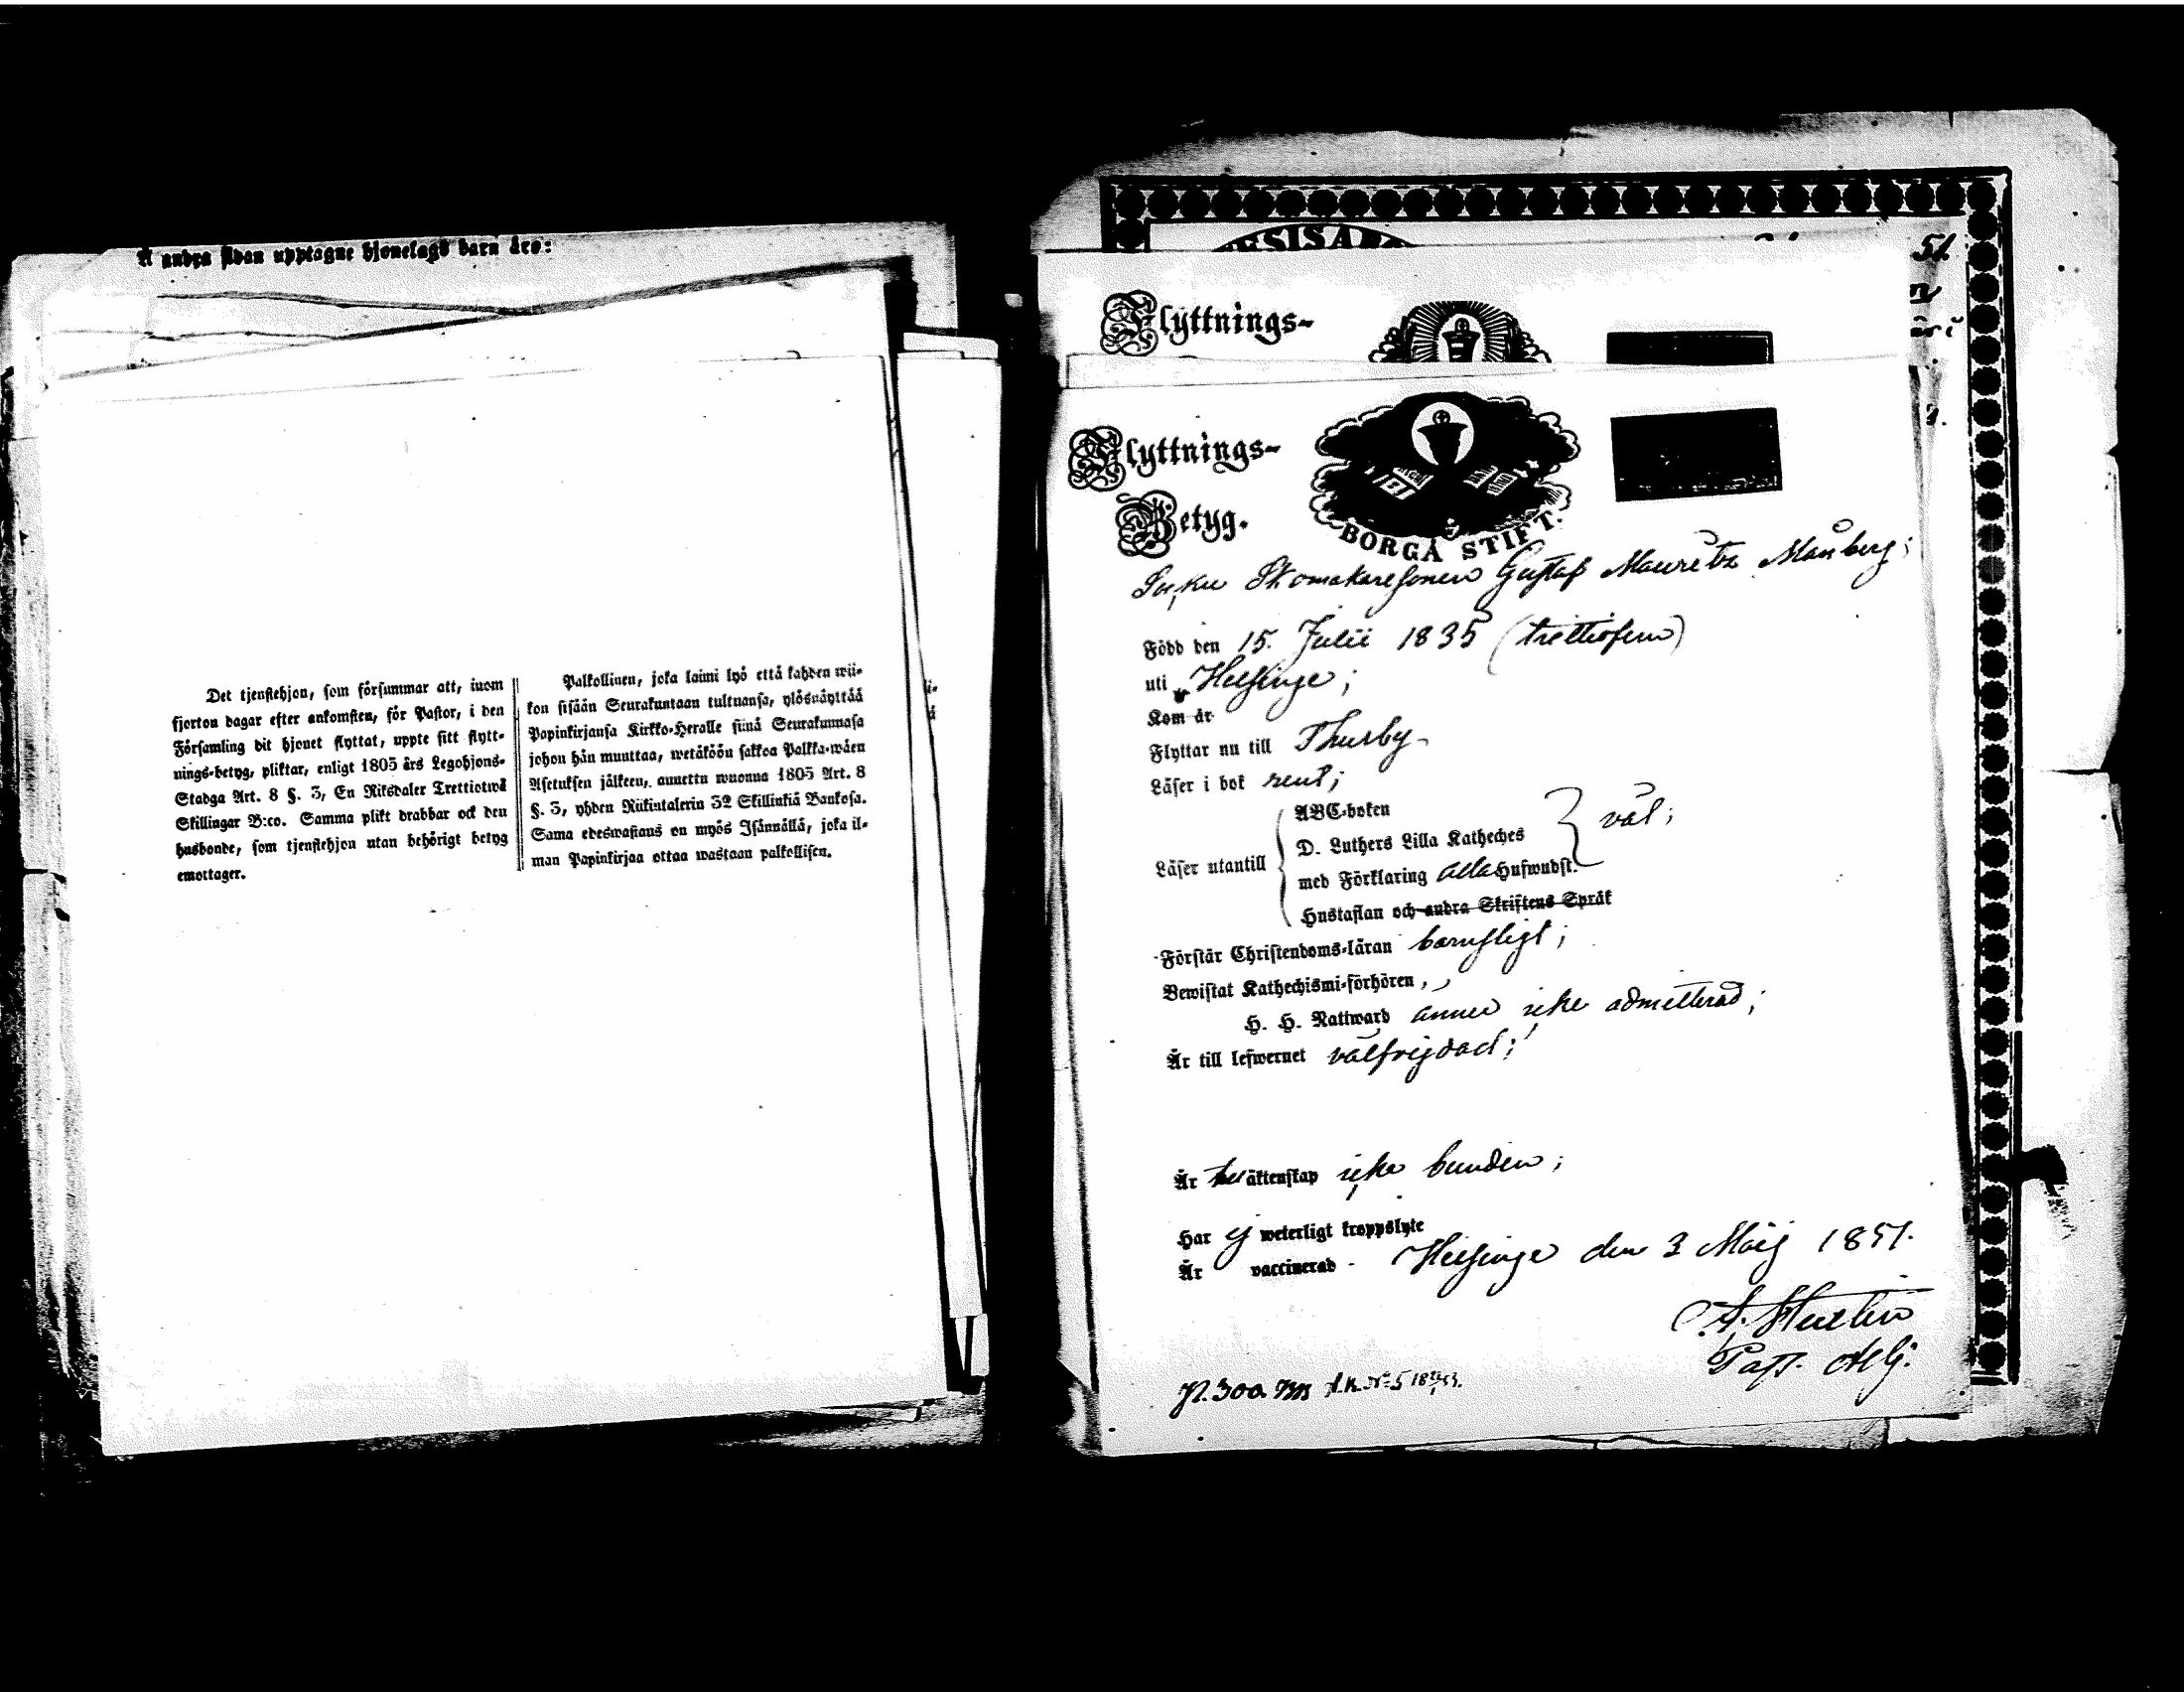 Å andra sidan upptagne hjonelags barn äro:
Det tjenstehjon, som försummar att, inom
fjorton dagar efter ankomsten, för Pastor, i den
Församling dit hjonet flyttat, uppte sitt flytt-
nings-betyg, pliktar, enligt 1805 års Legohjons-
Stadga Art. 8 §. 3, En Riksdaler Trettiotwå
Skillingar B:co. Samma plikt drabbar ock den
husbonde, som tjenstehjon utan behörigt betyg
emottager.
Palkollinen, joka laimi lyö että kahden wii-
kon sisään Seurakuntaan tultuansa, ylösnäyttää
Papinkirjansa Kirkko-Heralle siinä Seurakunnasa
johon hän muuttaa, wetäköön sakkoa Palkka-wäen
Asetuksen jälkeen, annettu wuonna 1805 Art. 8
§. 3, yhden Riikintalerin 32 Skillinkiä Bankosa.
Sama edeswastaus on myös Isännällä, joka il-
man Papinkirjaa ottaa wastaan palkollisen.
51
Flyttnings-
Flyttnings-
Betyg.
BORGÅ STIFT.
Skomakaresonen Gustaf Mauritz Månberg;
Född den 15. Julii 1835 (trettiofem)
uti Helsinge;
Kom år
Flyttar nu till Thusby
Läser i bok rent;
Läser utantill
ABC-boken
D. Luthers Lilla Katheches
med Förklaring alla Hufwudst.
väl;
Hustaflan och andra Skriftens Språk
Förstår Christendoms-läran barnsligt;
Bewistat Kathechismi-förhören,
H. H. Nattward ännu icke admitterad;
Är till lefwernet välfrejdad;
Är till äktenskap icke bunden;
Har ej weterligt kroppslyte
Är vaccinerad - Helsinge den 3 Maij 1851.
Past. Adj.
N. 300.